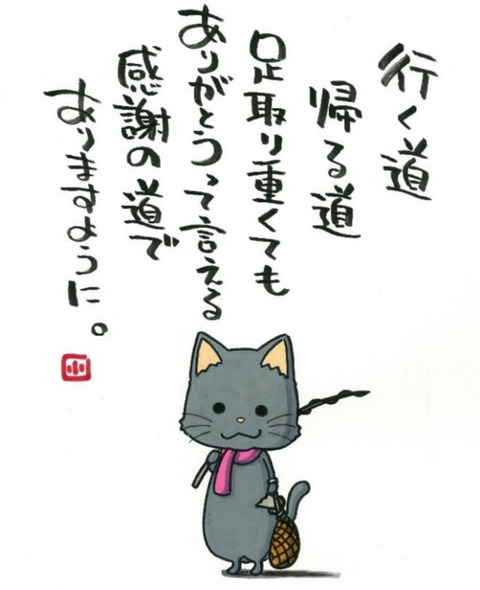 行く道
帰る道
足取り重くても
ありがとうって言える
感謝の道で
ありますように。
小